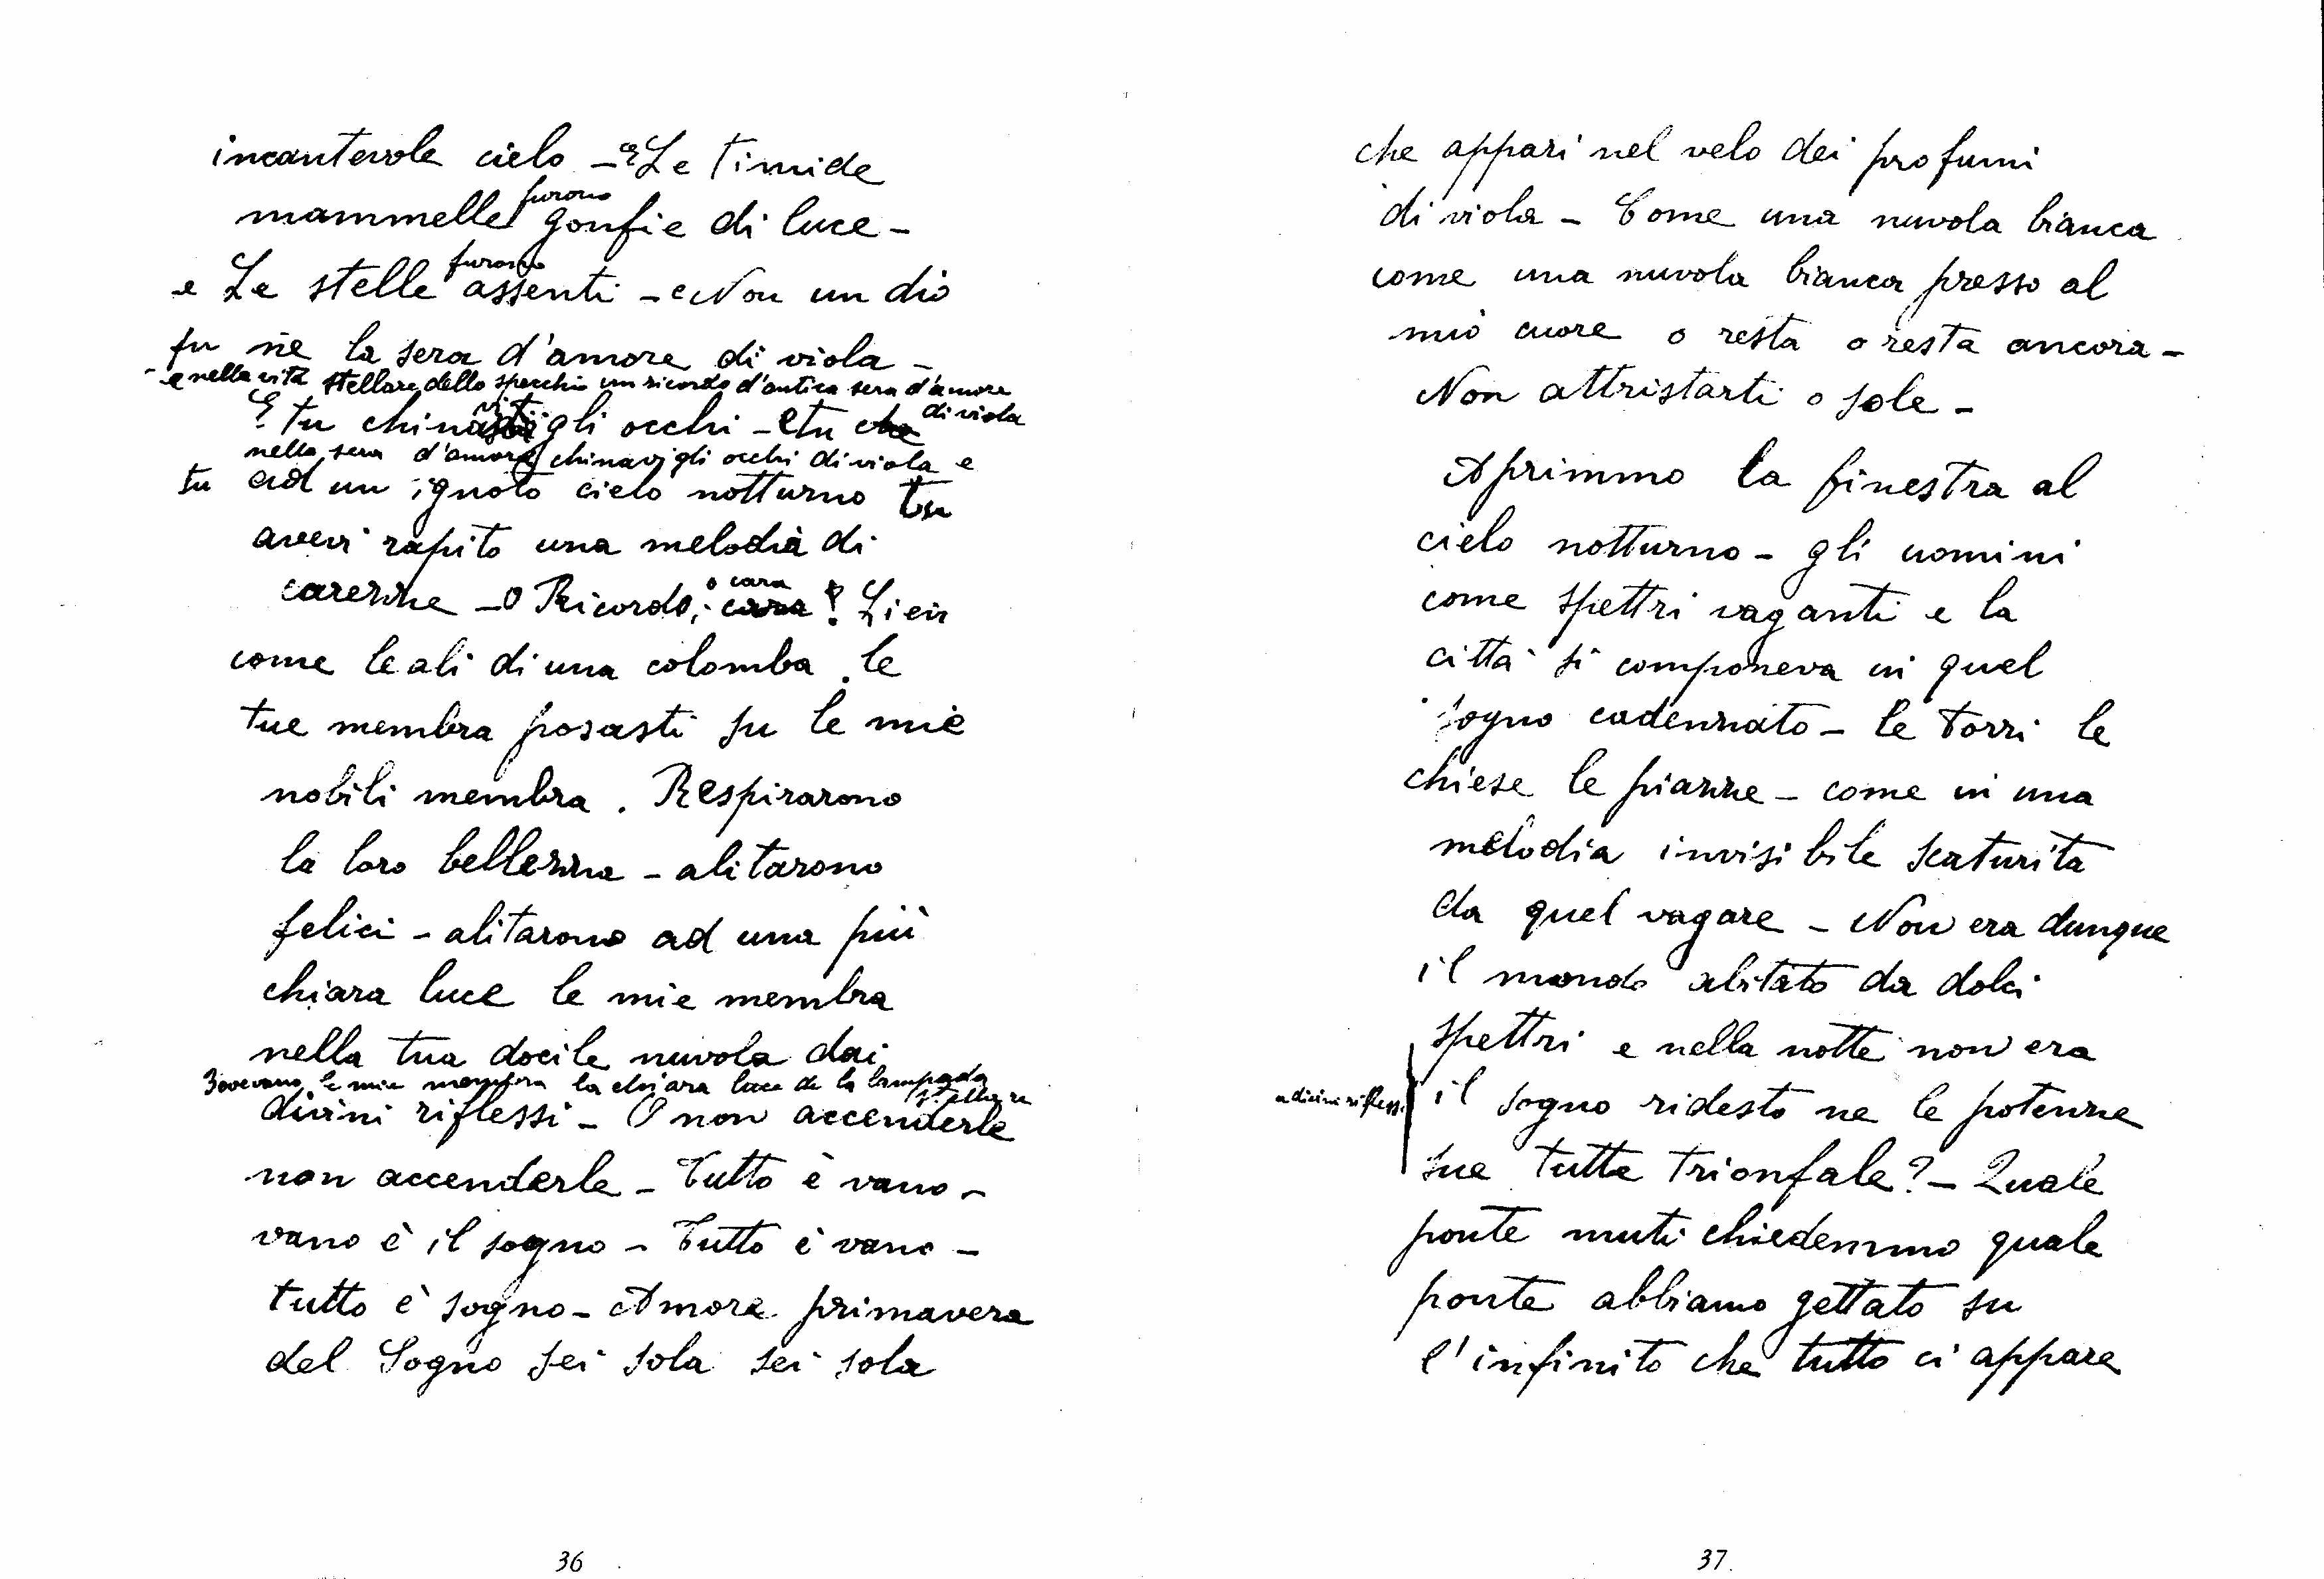 incantevole cielo – e Le timide
furono
mammelle gonfie di luce –
furono
e Le stelle assenti – e Non un dio
fu ne la sera d'amore di viola –
e nella vita stellare dello specchio un ricordo d'antica sera d'amore
di viola
E tu chinavi gli occhi – e tu che
nella sera d'amore chinavi gli occhi di viola e
tu ad un ignoto cielo notturno tu
avevi rapito una melodia di
o cara
carezze – O Ricordo, cara! Lievi
come le ali di una colomba le
tue membra posasti su le mie
nobili membra. Respirarono
la loro bellezza – alitarono
felici – alitarono ad una più
chiara luce le mie membra
nella tua docile nuvola dai
le mie membra la chiara luce de la lampada
stellare
divini riflessi – O non accenderle
non accenderle – Tutto è vano –
vano è il sogno – Tutto è vano –
tutto è sogno – Amore primavera
del Sogno sei sola sei sola
36
che appari nel velo dei profumi
di viola – Come una nuvola bianca
come una nuvola bianca presso al
mio cuore o resta o resta ancora –
Non attristarti o sole –
Aprimmo la finestra al
cielo notturno – gli uomini
come spettri vaganti e la
città si componeva in quel
sogno cadenzato – le torri le
chiese le piazze – come in una
melodia invisibile scaturita
da quel vagare – Non era dunque
il mondo abitato da dolci
spettri e nella notte non era
a divini riflessi
il sogno ridesto ne le potenze
sue tutte trionfale? – Quale
ponte muti chiedemmo quale
ponte abbiamo gettato su
l'infinito che tutto ci appare
37.